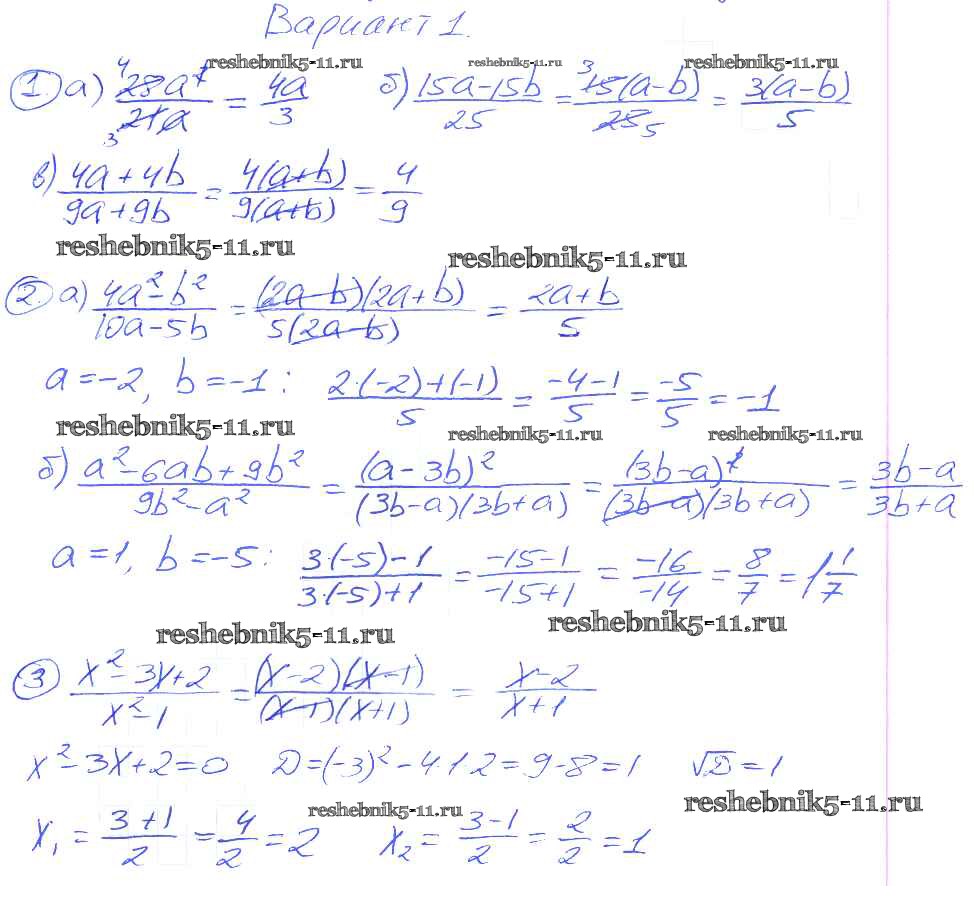 Вариант 1.
reshebnik5-11.ru reshebnik5-11.ru reshebnik5-11.ru
1. а) 28a²/21a = 4a/3 б) (15a-15b)/25 = 15(a-b)/25 = 3(a-b)/5
в) (4a+4b)/(9a+9b) = 4(a+b)/9(a+b) = 4/9
reshebnik5-11.ru reshebnik5-11.ru
2. а) (4a²-b²)/(10a-5b) = (2a-b)(2a+b)/5(2a-b) = (2a+b)/5
a=-2, b=-1: (2·(-2)+(-1))/5 = (-4-1)/5 = -5/5 = -1
reshebnik5-11.ru reshebnik5-11.ru reshebnik5-11.ru
б) (a²-6ab+9b²)/(9b²-a²) = (a-3b)²/(3b-a)(3b+a) = (3b-a)²/(3b-a)(3b+a) = (3b-a)/(3b+a)
a=1, b=-5: (3·(-5)-1)/(3·(-5)+1) = (-15-1)/(-15+1) = -16/-14 = 8/7 = 1 1/7
reshebnik5-11.ru reshebnik5-11.ru
3 (x²-3x+2)/(x²-1) = (x-2)(x-1)/(x-1)(x+1) = (x-2)/(x+1)
x²-3x+2=0 D=(-3)²-4·1·2=9-8=1 √D=1
reshebnik5-11.ru reshebnik5-11.ru
x₁ = (3+1)/2 = 4/2 = 2 x₂ = (3-1)/2 = 2/2 = 1